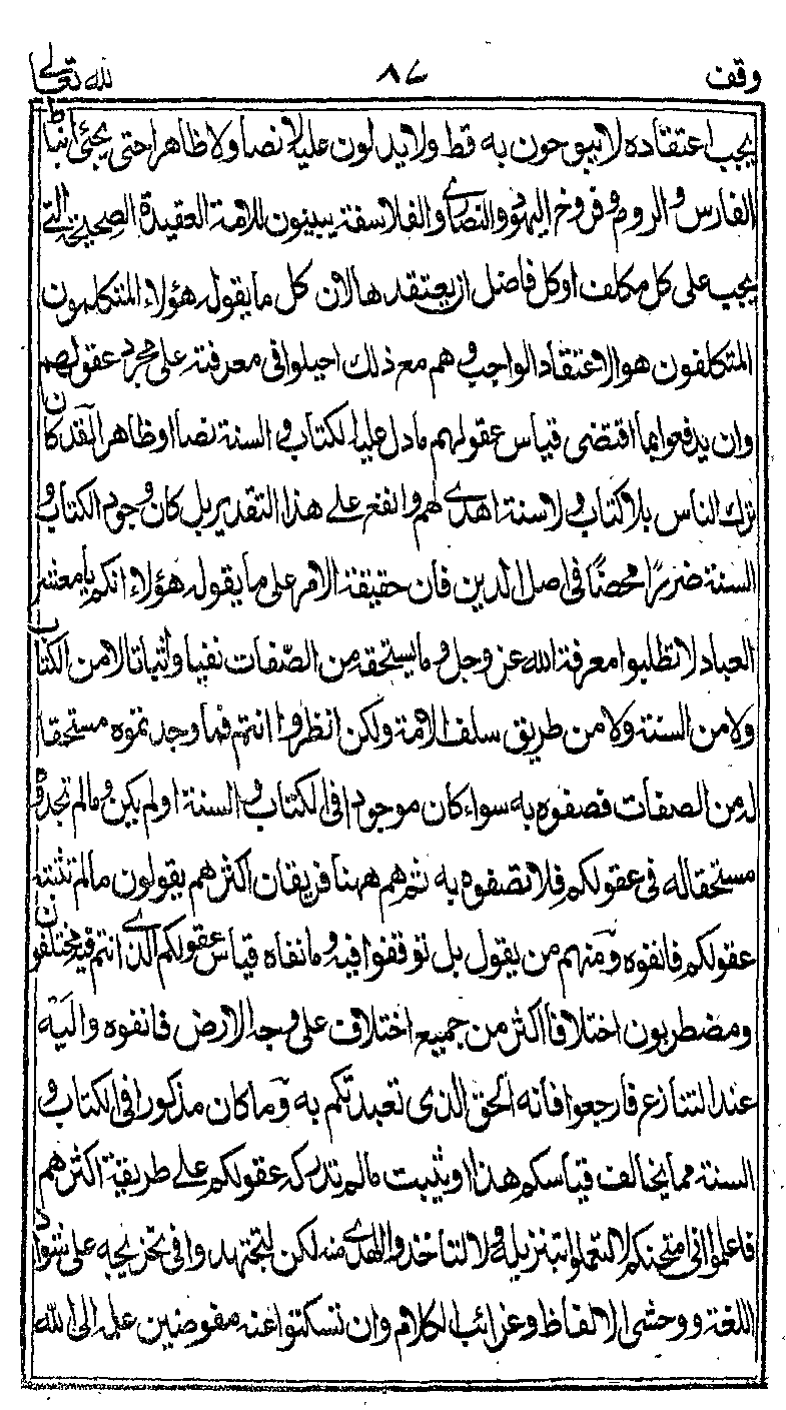 وقف ٨٧ لله تعالى
يجب اعتقاده لا يبوحون به قط ولا يدلون عليه لا نصا ولا ظاهرا حتى يجئ انباط
الفارس والروم وفروخ اليهود والنصارى والفلاسفة يبينون للامة العقيدة الصحيحة التى
يجب على كل مكلف او كل فاضل ان يعتقدها لان كل ما يقوله هؤلاء المتكلمون
المتكلفون هو الاعتقاد الواجب وهم مع ذلك احيلوا فى معرفته على مجرد عقولهم
وان يدفعوا بما اقتضى قياس عقولهم ما دل عليه الكتاب والسنة نصا او ظاهرا لقد كان
ترك الناس بلا كتاب ولا سنة اهدى لهم وانفع على هذا التقدير بل كان وجود الكتاب و
السنة ضررا محضا فى اصل الدين فان حقيقة الامر على ما يقوله هؤلاء انكم يا معشر
العباد لا تطلبوا معرفة الله عز وجل وما يستحقه من الصفات نفيا واثباتا لا من الكتاب
ولا من السنة ولا من طريق سلف الامة ولكن انظروا انتم فما وجدتموه مستحقا
له من الصفات فصفوه به سواء كان موجودا فى الكتاب والسنة او لم يكن وما لم تجدوه
مستحقا له فى عقولكم فلا تصفوه به ثم هم ههنا فريقان اكثرهم يقولون ما لم تثبته
عقولكم فانفوه ومنهم من يقول بل توقفوا فيه وما نفاه قياس عقولكم الذى انتم فيه مختلفون
ومضطربون اختلافا اكثر من جميع اختلاف على وجه الارض فانفوه واليه
عند التنازع فارجعوا فانه الحق الذى تعبدتكم به وما كان مذكورا فى الكتاب و
السنة مما يخالف قياسكم هذا او يثبت ما لم تدركه عقولكم على طريقة اكثرهم
فاعلموا انى امتحنكم لا لتعملوا بتنزيله ولا لتاخذوا الهدى منه لكن لتجتهدوا فى تخريجه على شواذ
اللغة ووحشى الالفاظ وغرائب الكلام وان تسكتوا عنه مفوضين علمه الى الله